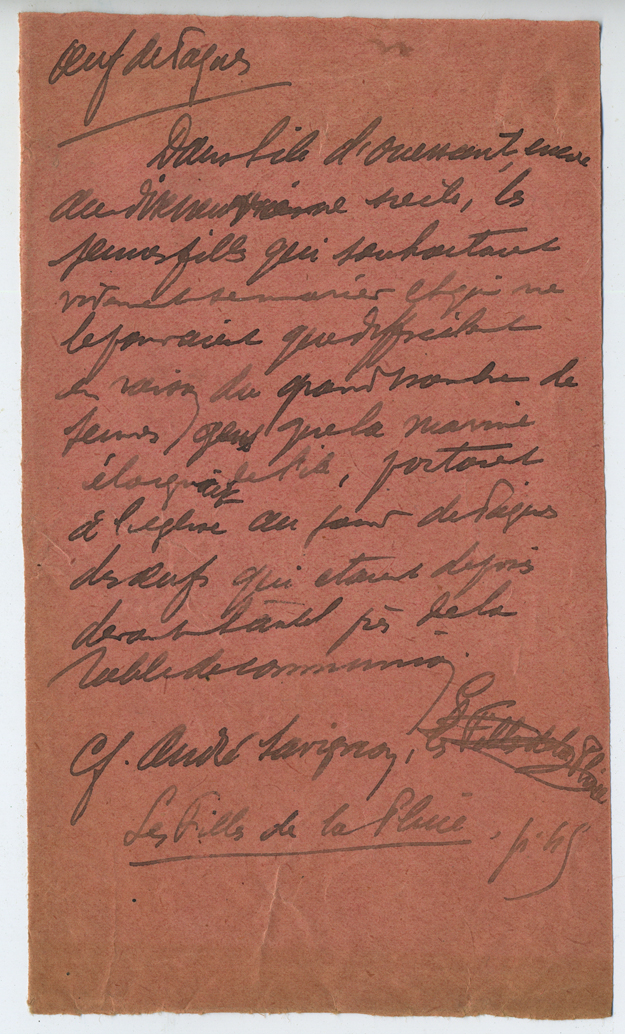 Œuf de Pâques
Dans l'île d'Ouessant, encore
au dixneuvième siècle, les
jeunes filles qui souhaitaient
se marier et qui ne
le pouvaient que difficilement
en raison du grand nombre de
jeunes gens que la marine
éloignait de l'île, portaient
à l'église au jour de Pâques
des œufs qui étaient déposés
devant l'autel près de la
Table de communion.
Cf. André Savignon, les Filles de la Pluie
Les Filles de la Pluie, p. 45